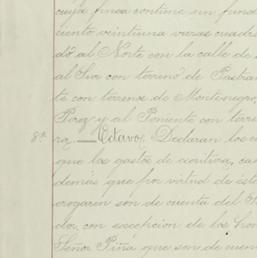 cuya finca contiene un fund
ciento veintiuna varas cuadra
do al Norte con la calle de
al Sur con terreno de Pastran
te con terrenos de Montenegro,
Perez y al Poniente con terre
8ª ra. — Octavo. Declaran los co
que los gastos de escritura, ca
demás que por virtud de ést
erogaren son de cuenta del
dor, con escepcion de los hon
Señor Piña que son de cuen